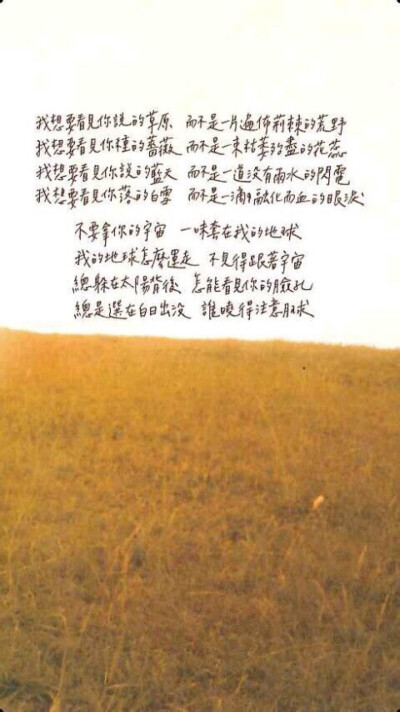 我想要看見你說的草原 而不是一片遍佈荊棘的荒野
我想要看見你種的薔薇 而不是一束枯萎殆盡的花蕊
我想要看見你說的藍天 而不是一道沒有雨水的閃電
我想要看見你落的白雪 而不是一滴融化而血的眼淚
不要拿你的宇宙 一味套在我的地球
我的地球怎麼運走 不見得跟著宇宙
總躲在太陽背後 怎能看見你的臉孔
總是選在白日出沒 誰曉得注意月球